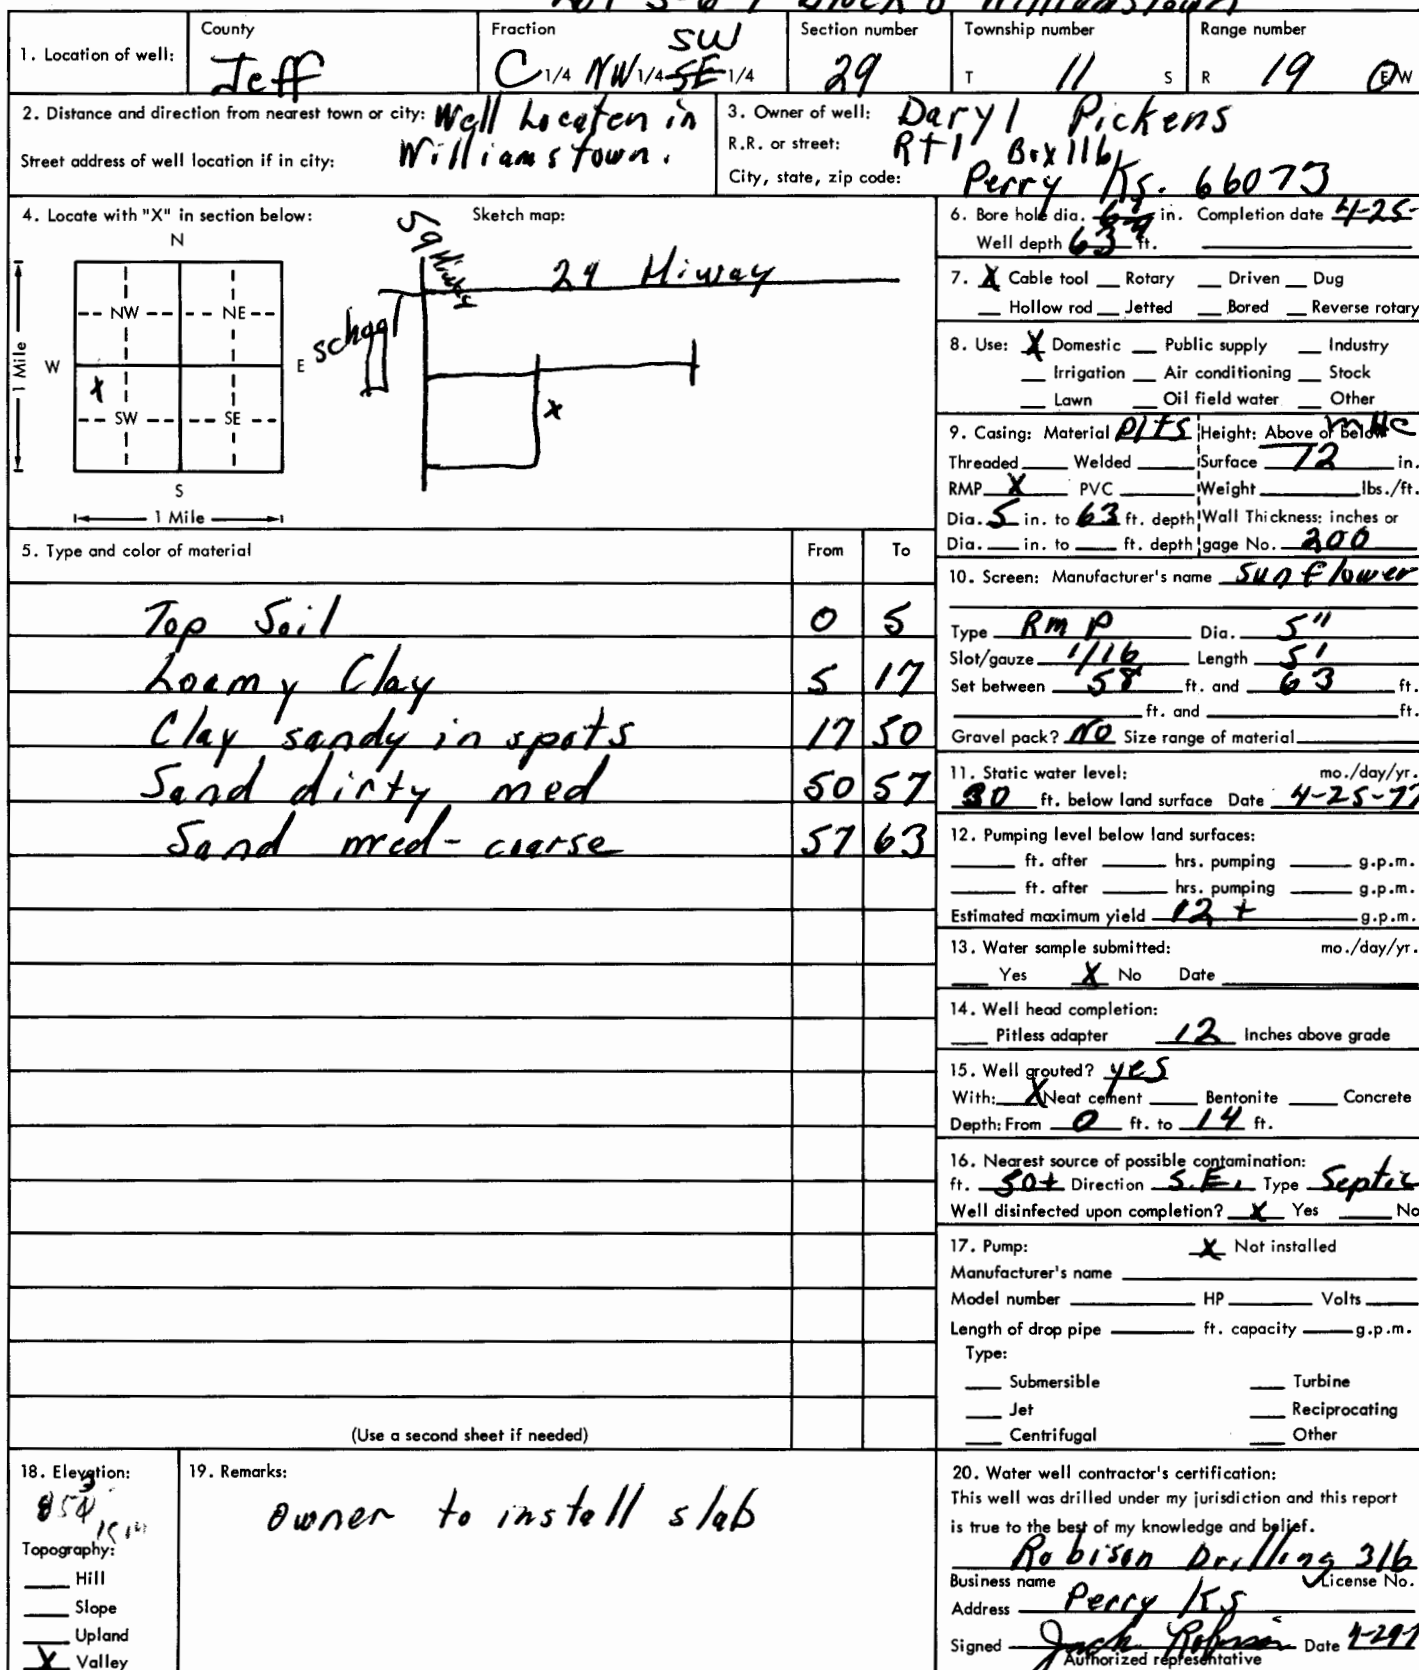 Lot 5-6-7 Block 8 Williamstown
1. Location of well: County Jeff Fraction C 1/4 NW 1/4 SE 1/4 SW Section number 29 Township number T 11 S Range number R 19 E W
2. Distance and direction from nearest town or city: Well Locaten in
Street address of well location if in city: Williamstown.
3. Owner of well: Daryl Pickens
R.R. or street: Rt 1 Box 116
City, state, zip code: Perry Ks. 66073
4. Locate with "X" in section below:
N
NW NE
W E
X
SW SE
S
1 Mile
1 Mile
Sketch map:
59 Hiway
24 Hiway
school
x
5. Type and color of material From To
Top Soil 0 5
Loamy Clay 5 17
Clay sandy in spots 17 50
Sand dirty med 50 57
Sand med- coarse 57 63
(Use a second sheet if needed)
6. Bore hole dia. in. Completion date 4-25-
Well depth 63 ft.
7. X Cable tool Rotary Driven Dug
Hollow rod Jetted Bored Reverse rotary
8. Use: X Domestic Public supply Industry
Irrigation Air conditioning Stock
Lawn Oil field water Other
9. Casing: Material Height: Above or below
Threaded Welded Surface 72 in.
RMP X PVC Weight lbs./ft.
Dia. 5 in. to 63 ft. depth Wall Thickness: inches or
Dia. in. to ft. depth gage No. 200
10. Screen: Manufacturer's name Sunflower
Type Rmp Dia. 5"
Slot/gauze 1/16 Length 5'
Set between 58 ft. and 63 ft.
ft. and ft.
Gravel pack? No Size range of material
11. Static water level: mo./day/yr.
30 ft. below land surface Date 4-25-77
12. Pumping level below land surfaces:
ft. after hrs. pumping g.p.m.
ft. after hrs. pumping g.p.m.
Estimated maximum yield 12 + g.p.m.
13. Water sample submitted: mo./day/yr.
Yes X No Date
14. Well head completion:
Pitless adapter 12 Inches above grade
15. Well grouted? yes
With: X Neat cement Bentonite Concrete
Depth: From 0 ft. to 14 ft.
16. Nearest source of possible contamination:
ft. 50+ Direction S.E. Type Septic
Well disinfected upon completion? X Yes No
17. Pump: X Not installed
Manufacturer's name
Model number HP Volts
Length of drop pipe ft. capacity g.p.m.
Type:
Submersible Turbine
Jet Reciprocating
Centrifugal Other
18. Elevation:
Topography:
Hill
Slope
Upland
X Valley
19. Remarks:
owner to install slab
20. Water well contractor's certification:
This well was drilled under my jurisdiction and this report
is true to the best of my knowledge and belief.
Robison Drilling 316
Business name License No.
Address Perry Ks
Signed Jack Robison Date 4-29-7
Authorized representative